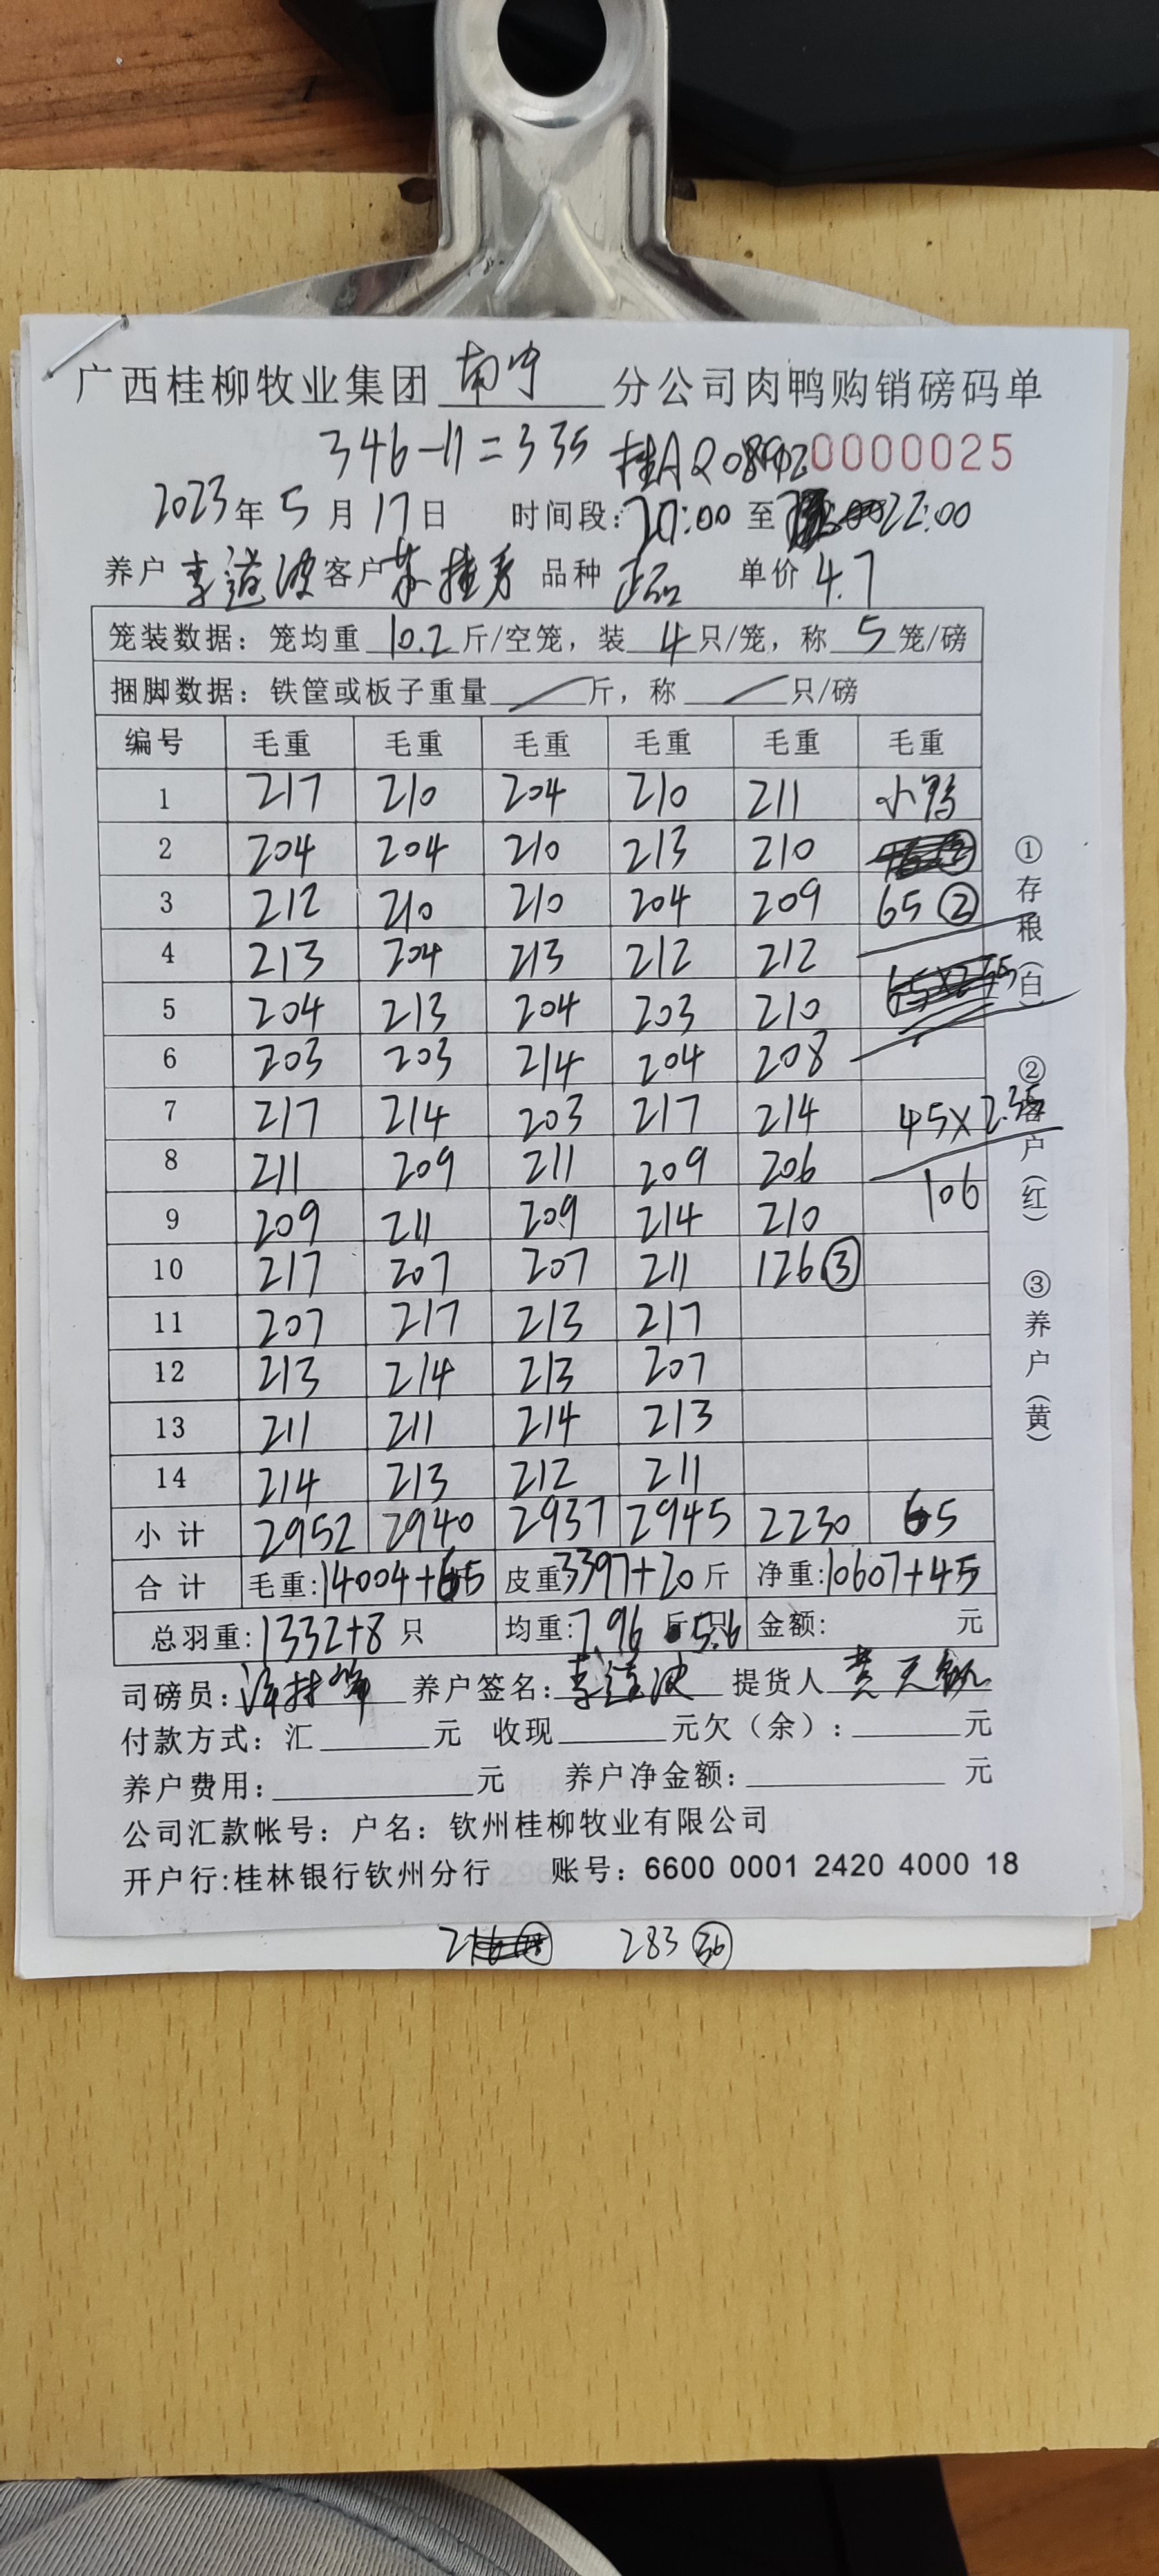 广西桂柳牧业集团 南宁 分公司肉鸭购销磅码单
346-11=335 桂A 0000025
2023年5月17日 时间段: :00 至 22:00
养户 李道波 客户 苏 品种 正品 单价 4.7
笼装数据: 笼均重 10.2 斤/空笼, 装 4 只/笼, 称 5 笼/磅
捆脚数据: 铁筐或板子重量 / 斤, 称 / 只/磅
编号 毛重 毛重 毛重 毛重 毛重 毛重
1 217 210 204 210 211 小鸭
2 204 204 210 213 210
3 212 210 210 204 209 65 ②
4 213 204 213 212 212
5 204 213 204 203 210
6 203 203 214 204 208
7 217 214 203 217 214 45×2.35
8 211 209 211 209 206
9 209 211 209 214 210 106
10 217 207 207 211 126③
11 207 217 213 217
12 213 214 213 207
13 211 211 214 213
14 214 213 212 211
小计 2952 2940 2937 2945 2230 65
合计 毛重:14004+65 皮重3397+20斤 净重:10607+45
总羽重:1332+8只 均重:7.96 斤/只 5.6 金额: 元
司磅员: 养户签名: 李道波 提货人 黄天钦
付款方式: 汇 元 收现 元欠(余): 元
养户费用: 元 养户净金额: 元
公司汇款帐号: 户名: 钦州桂柳牧业有限公司
开户行:桂林银行钦州分行 账号: 6600 0001 2420 4000 18
283 36
①存根(白) ②客户(红) ③养户(黄)